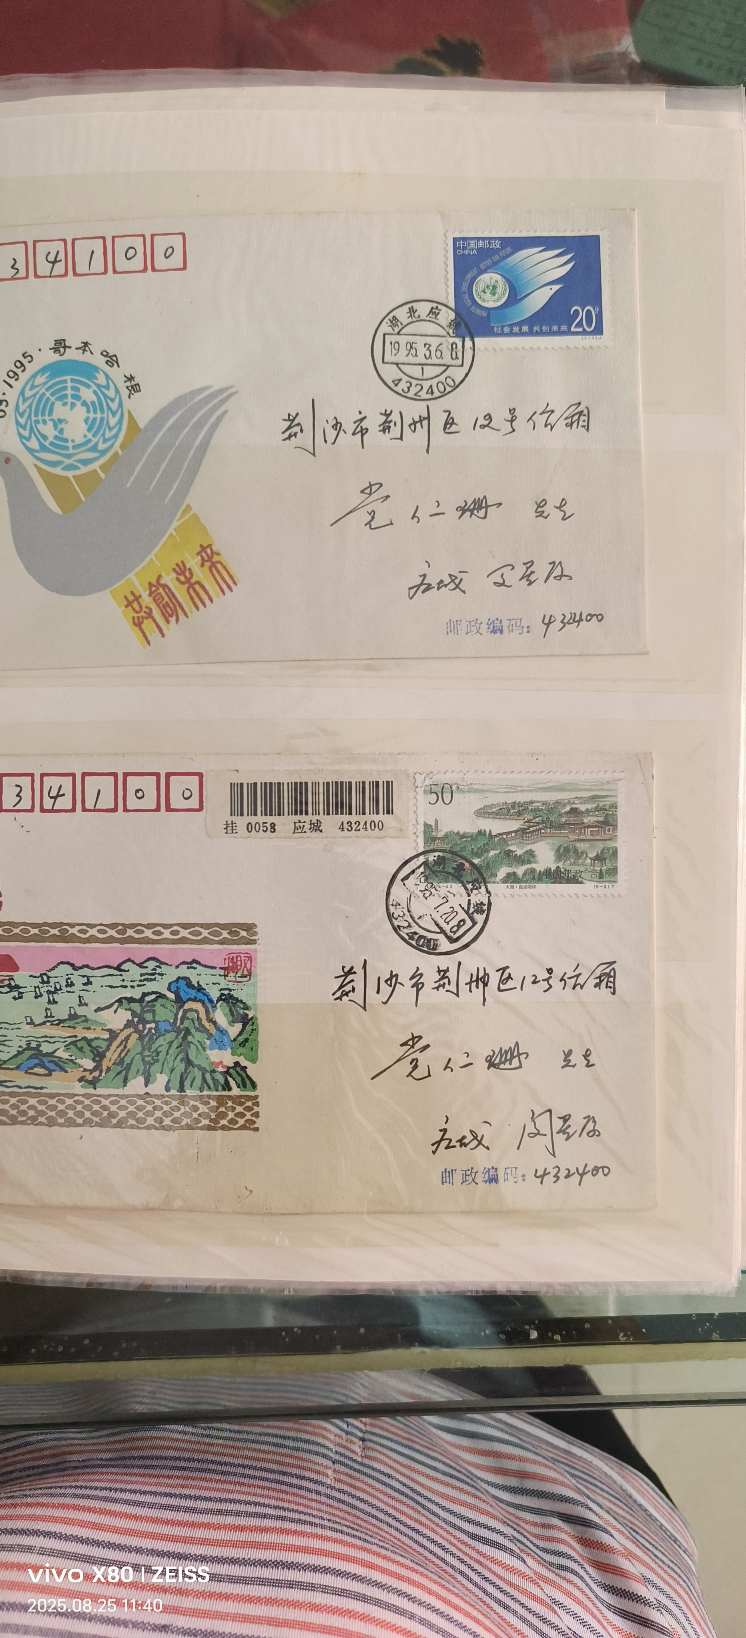 34100
中国邮政
CHINA
社会发展 共创未来
20分
湖北应城
1995.3.6.8
1
432400
03·1995·哥本哈根
荆沙市荆州区12号信箱
党仁珊 先生
应城
共創未来
邮政编码: 432400
34100
挂 0058 应城 432400
50
中国邮政
湖北应城
1995.7.20.8
432400
荆沙市荆州区12号信箱
党仁珊 先生
应城
邮政编码: 432400
vivo X80 | ZEISS
2025.08.25 11:40